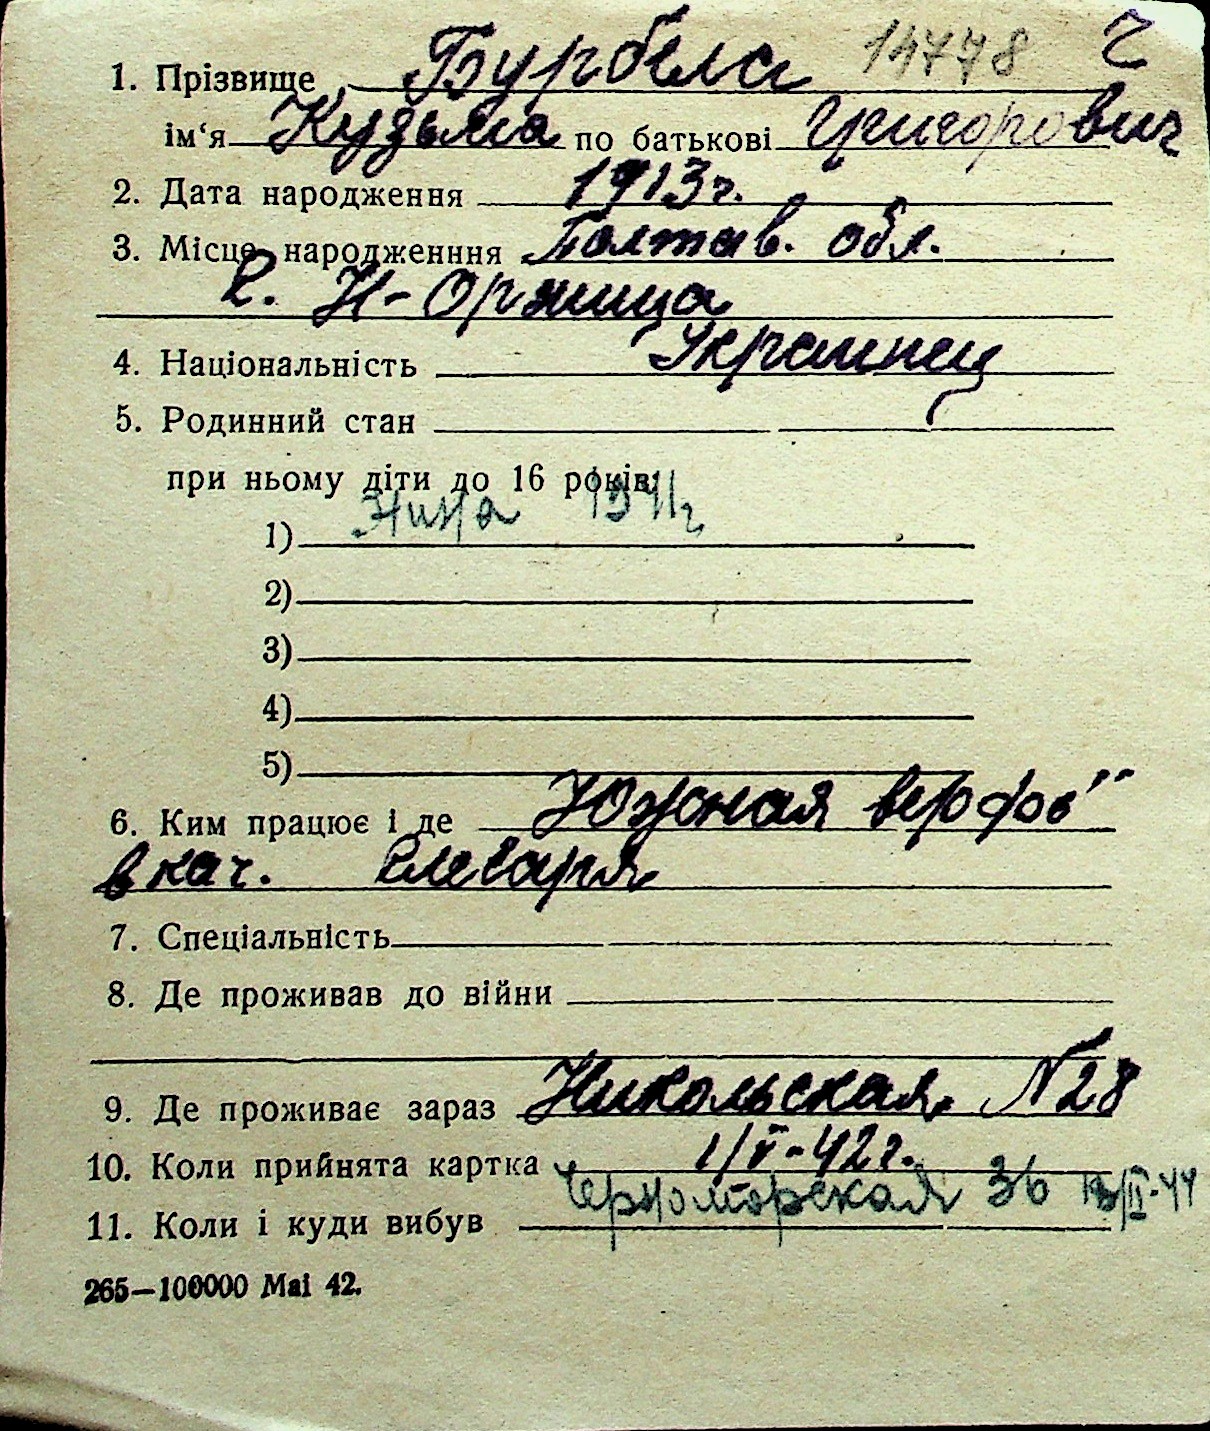 14778 Ч
1. Прізвище Бурбела
ім‘я Кузьма по батькові Григорович
2. Дата народження 1913 г.
3. Місце народженння Полтав. обл.
с. Н-Оржица
4. Національність Украинец
5. Родинний стан
при ньому діти до 16 років:
1) Нина 1941 г
2)
3)
4)
5)
6. Ким працює і де Южная верфь"
в кач. слесаря
7. Спеціальність
8. Де проживав до війни
9. Де проживає зараз Никольская № 28
10. Коли прийнята картка 1/V-42 г.
Черноморская 36 13/II-44
11. Коли і куди вибув
265—100000 Mai 42.